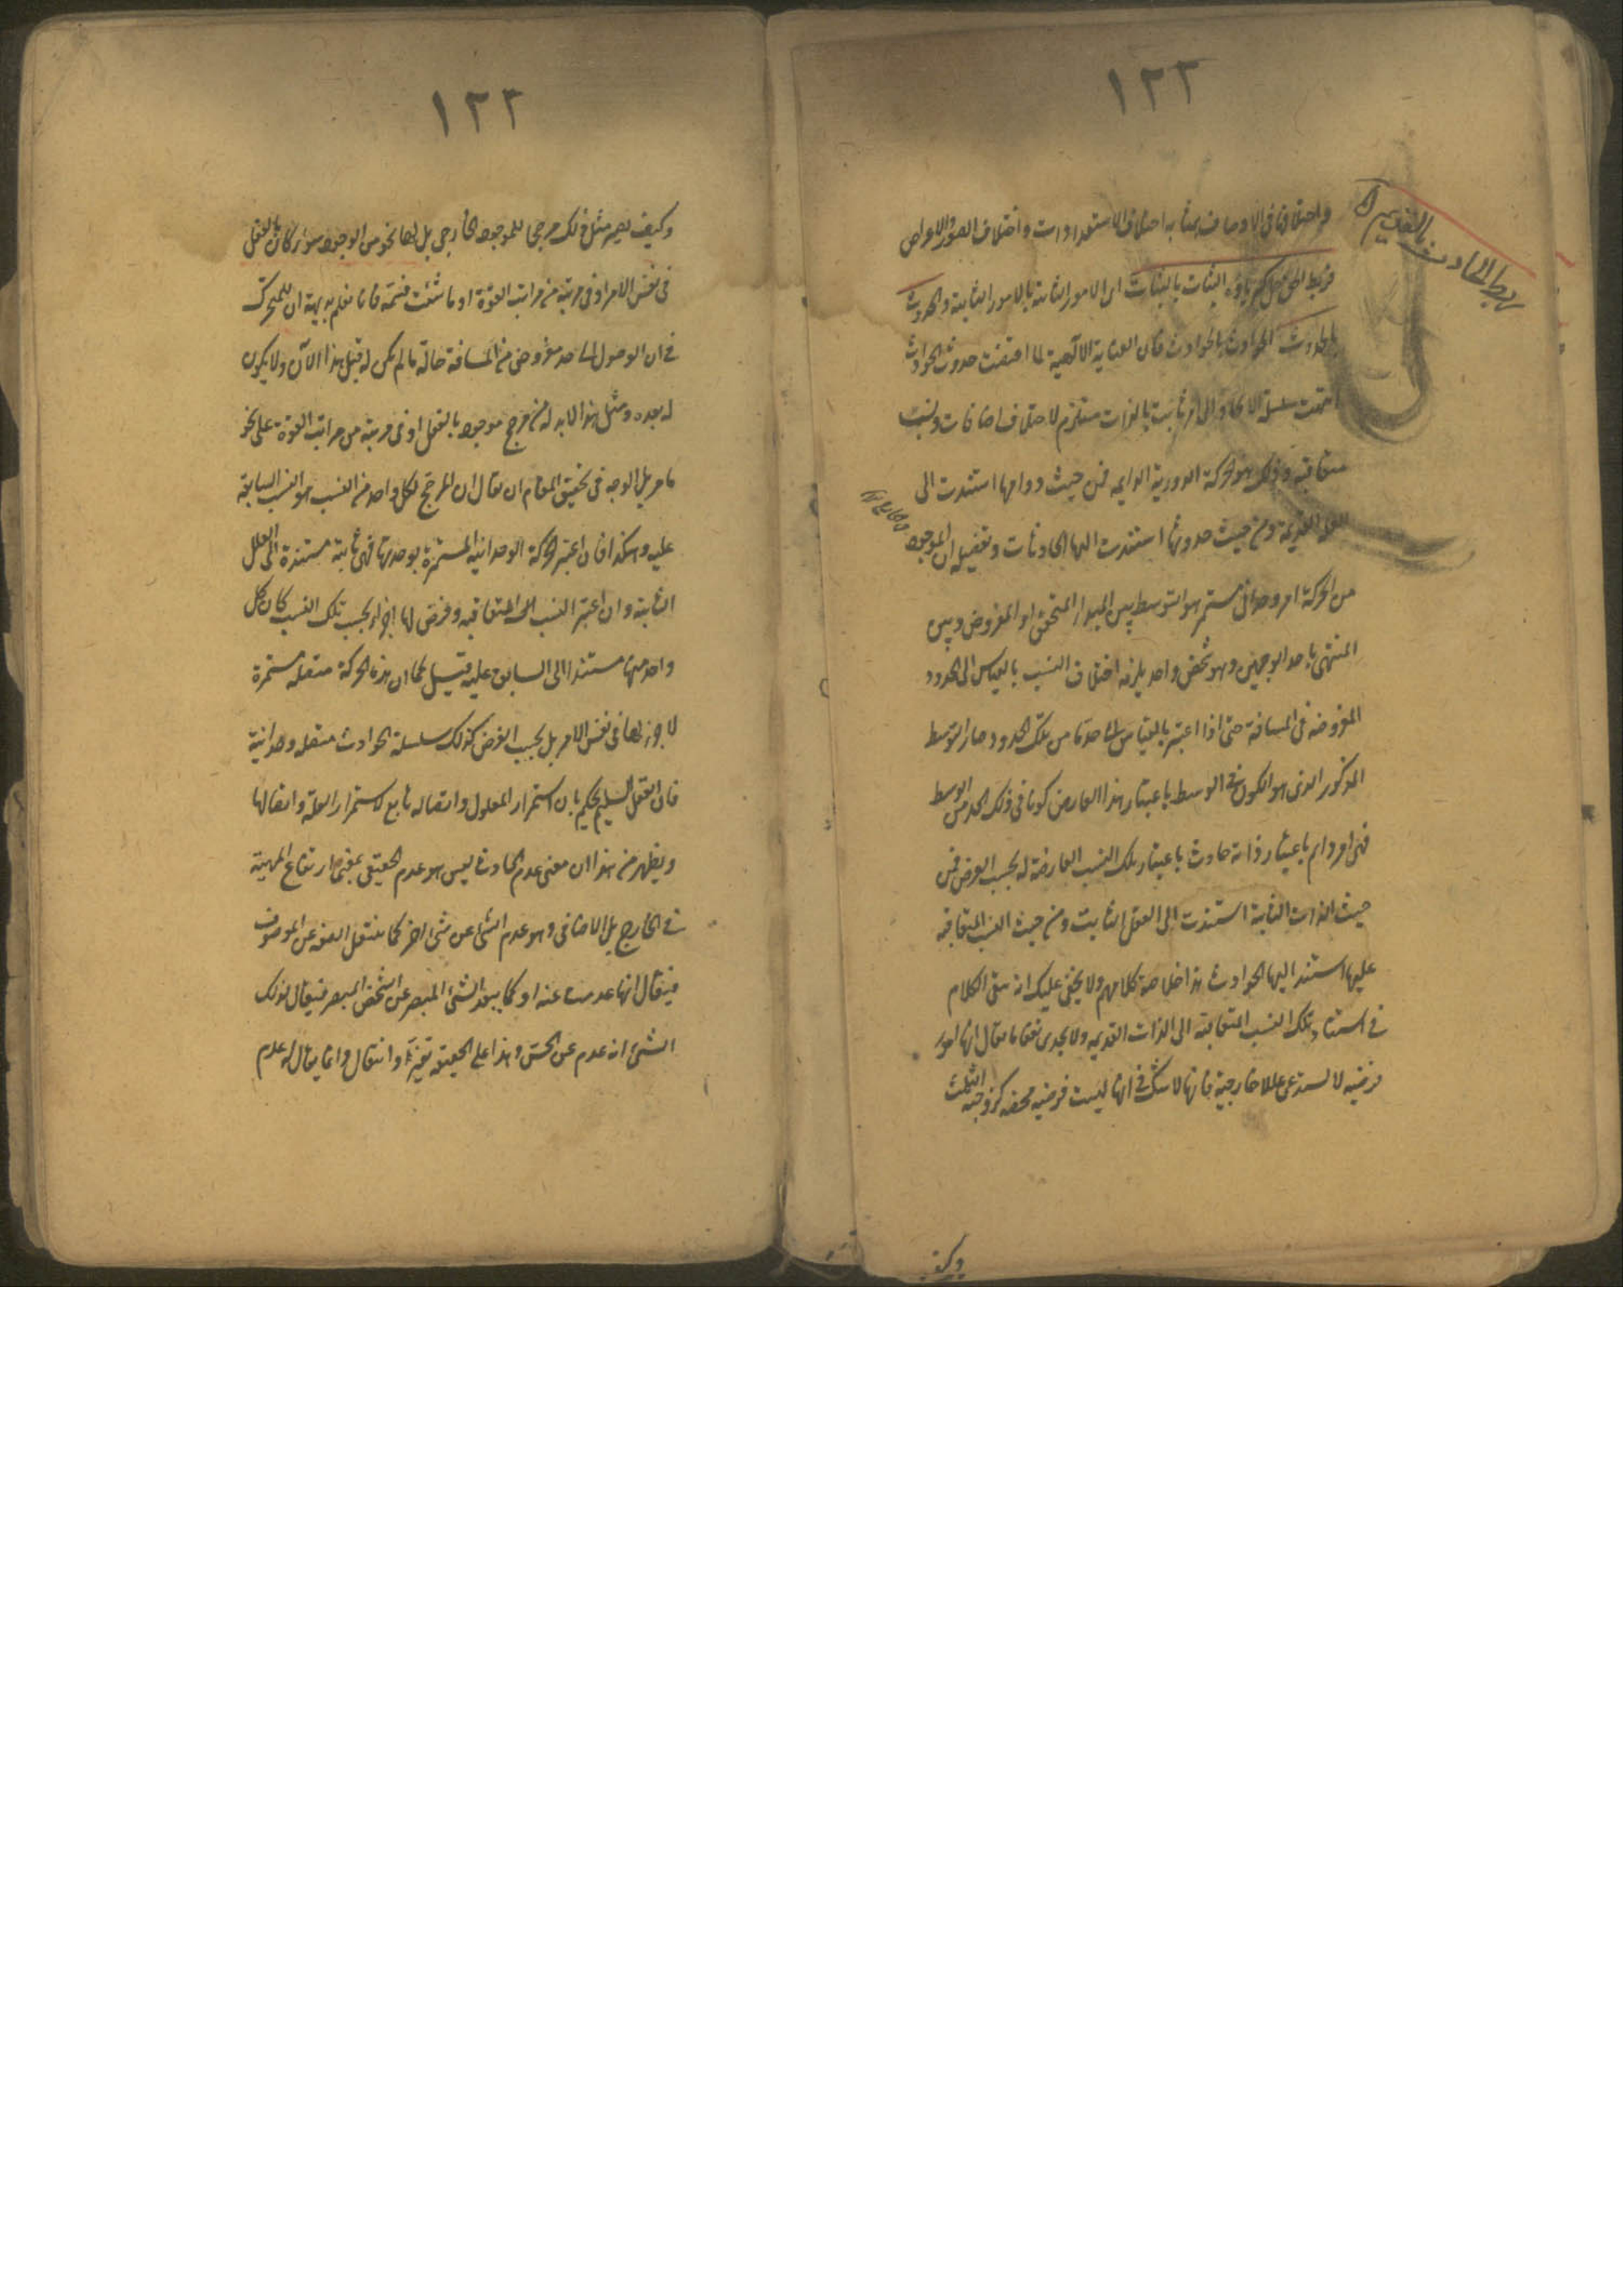 ١٢٢
ربط الحادث بالقديم
واختلافها في الاوصاف يشابه اختلاف الاستعدادات واختلاف الصور والاعراض
فربط الحق جل كبرياؤه الثبات بالثبات اى الامور الثابتة بالامور الثابتة والحدوث
بالحدوث اى الحوادث بالحوادث فان العناية الالهية لما اقتضت حدوث الحوادث
انتهت سلسلة الايجاد الى امر ثابت بالذات مستلزم لاختلاف اضافات ونسب
متعاقبة وذلك هو الحركة الدورية الدايمه فمن حيث دوامها استندت الى
العلة القديمة ومن حيث حدوثها استندت اليها الحادثات وتفصيله ان الموجود
من الحركة امر وحدانى مستمر هو التوسط بين المبدأ المتحقق او المفروض وبين
المنتهى باحد الوجهين وهو شخص واحد يلزمه اختلاف النسب بالقياس الى الحدود
المفروضه فى المسافة حتى اذا اعتبر بالقياس الى حد ما من تلك الحدود صار التوسط
المذكور الذى هو الكون فى الوسط باعتبار هذا العارض كونا فى ذلك الحد من الوسط
فهى امر دايم باعتبار ذاته حادث باعتبار تلك النسب العارضة له بحسب الفرض فمن
حيث الذات الثابتة استندت الى العقل الثابت ومن حيث النسب المتعاقبه
عليها استند اليها الحوادث هذا خلاصة كلامهم ولا يخفى عليك انه بقى الكلام
فى استناد تلك النسب المتعاقبة الى الذات القديمه ولا يجدى نفعا ما يقال انها امور
فرضيه لا تستدعى عللا خارجية فانها لا شك فى انها ليست فرضيه محضه كزوجية الثلثة
وكيف
١٢٢
وكيف يصير مثل ذلك مرجحا للموجود الخارجى بل لها نحو من الوجود سواء كان بالفعل
فى نفس الامر او فى مرتبة من مراتب القوة او ما شئت فسمه فانا نعلم بديهة ان للمتحرك
فى ان الوصول الى حد مفروض من المسافة حالة ما لم يكن له قبل هذا الآن ولا يكون
له بعده ومثل هذا لابد له من مرجح موجود بالفعل او فى مرتبة من مراتب القوة على نحو
ما مر بل الوجه فى تحقيق المقام ان يقال ان المرجح لكل واحد من النسب هو النسب السابقة
عليه وهكذا فان اعتبر الحركة الوحدانية المستمرة بوحدتها فهى ثابتة مستندة الى العلل
الثابتة وان اعتبر النسب المتعاقبه وفرض لها اجزاء بحسب تلك النسب كان كل
واحد منها مستندا الى السابق عليه فتسلسل كما ان هذه الحركة متصله مستمرة
لا جزء لها فى نفس الامر بل بحسب الفرض كذلك سلسلة الحوادث متصله وحدانية
فان العقل السليم يحكم بان استمرار المعلول واتصاله تابع لاستمرار العلة واتصالها
ويظهر من هذا ان معنى عدم الحادث ليس هو عدم الحقيقى بمعنى ارتفاع المهية
فى الخارج بل الاضافى وهو عدم الشئ عن شئ اخر كما ينتقل الصفه عن الموصوف
فيقال انها عدمت عنه او كما يبعد الشئ المبصر عن الشخص المبصر فيقال لذلك
الشئ انه عدم عن الحس وهذا على الحقيقه تغير وانتقال وانما يقال له عدم